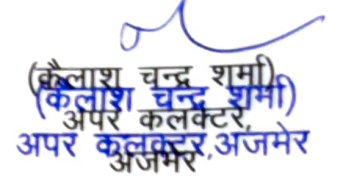 (कैलाश चन्द्र शर्मा)
(कैलाश चन्द्र शर्मा)
अपर कलक्टर,
अपर कलक्टर, अजमेर
अजमेर